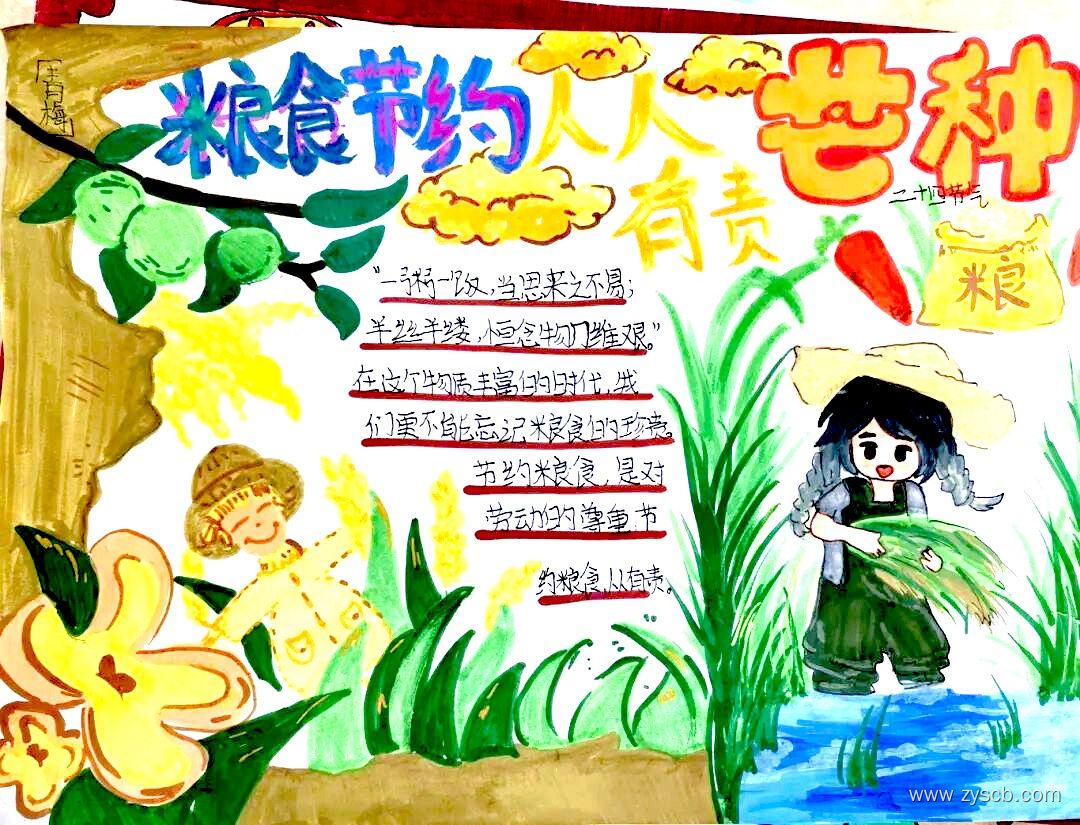 青梅
粮食节约 人人
有责
芒种
二十四节气
粮
“一粥一饭,当思来之不易;
半丝半缕,恒念物力维艰。”
在这个物质丰富的时代,我
们更不能忘记粮食的珍贵。
节约粮食,是对
劳动的尊重 节
约粮食,人人有责。
www.zyscb.com